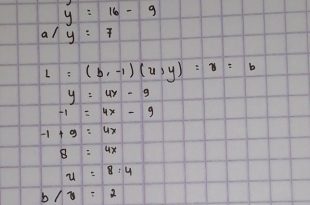 y = 16 - 9
a/ y = 7
L = (b, -1) (x, y) = x = b
y = 4x - 9
-1 = 4x - 9
-1 + 9 = 4x
8 = 4x
x = 8:4
b/ x = 2